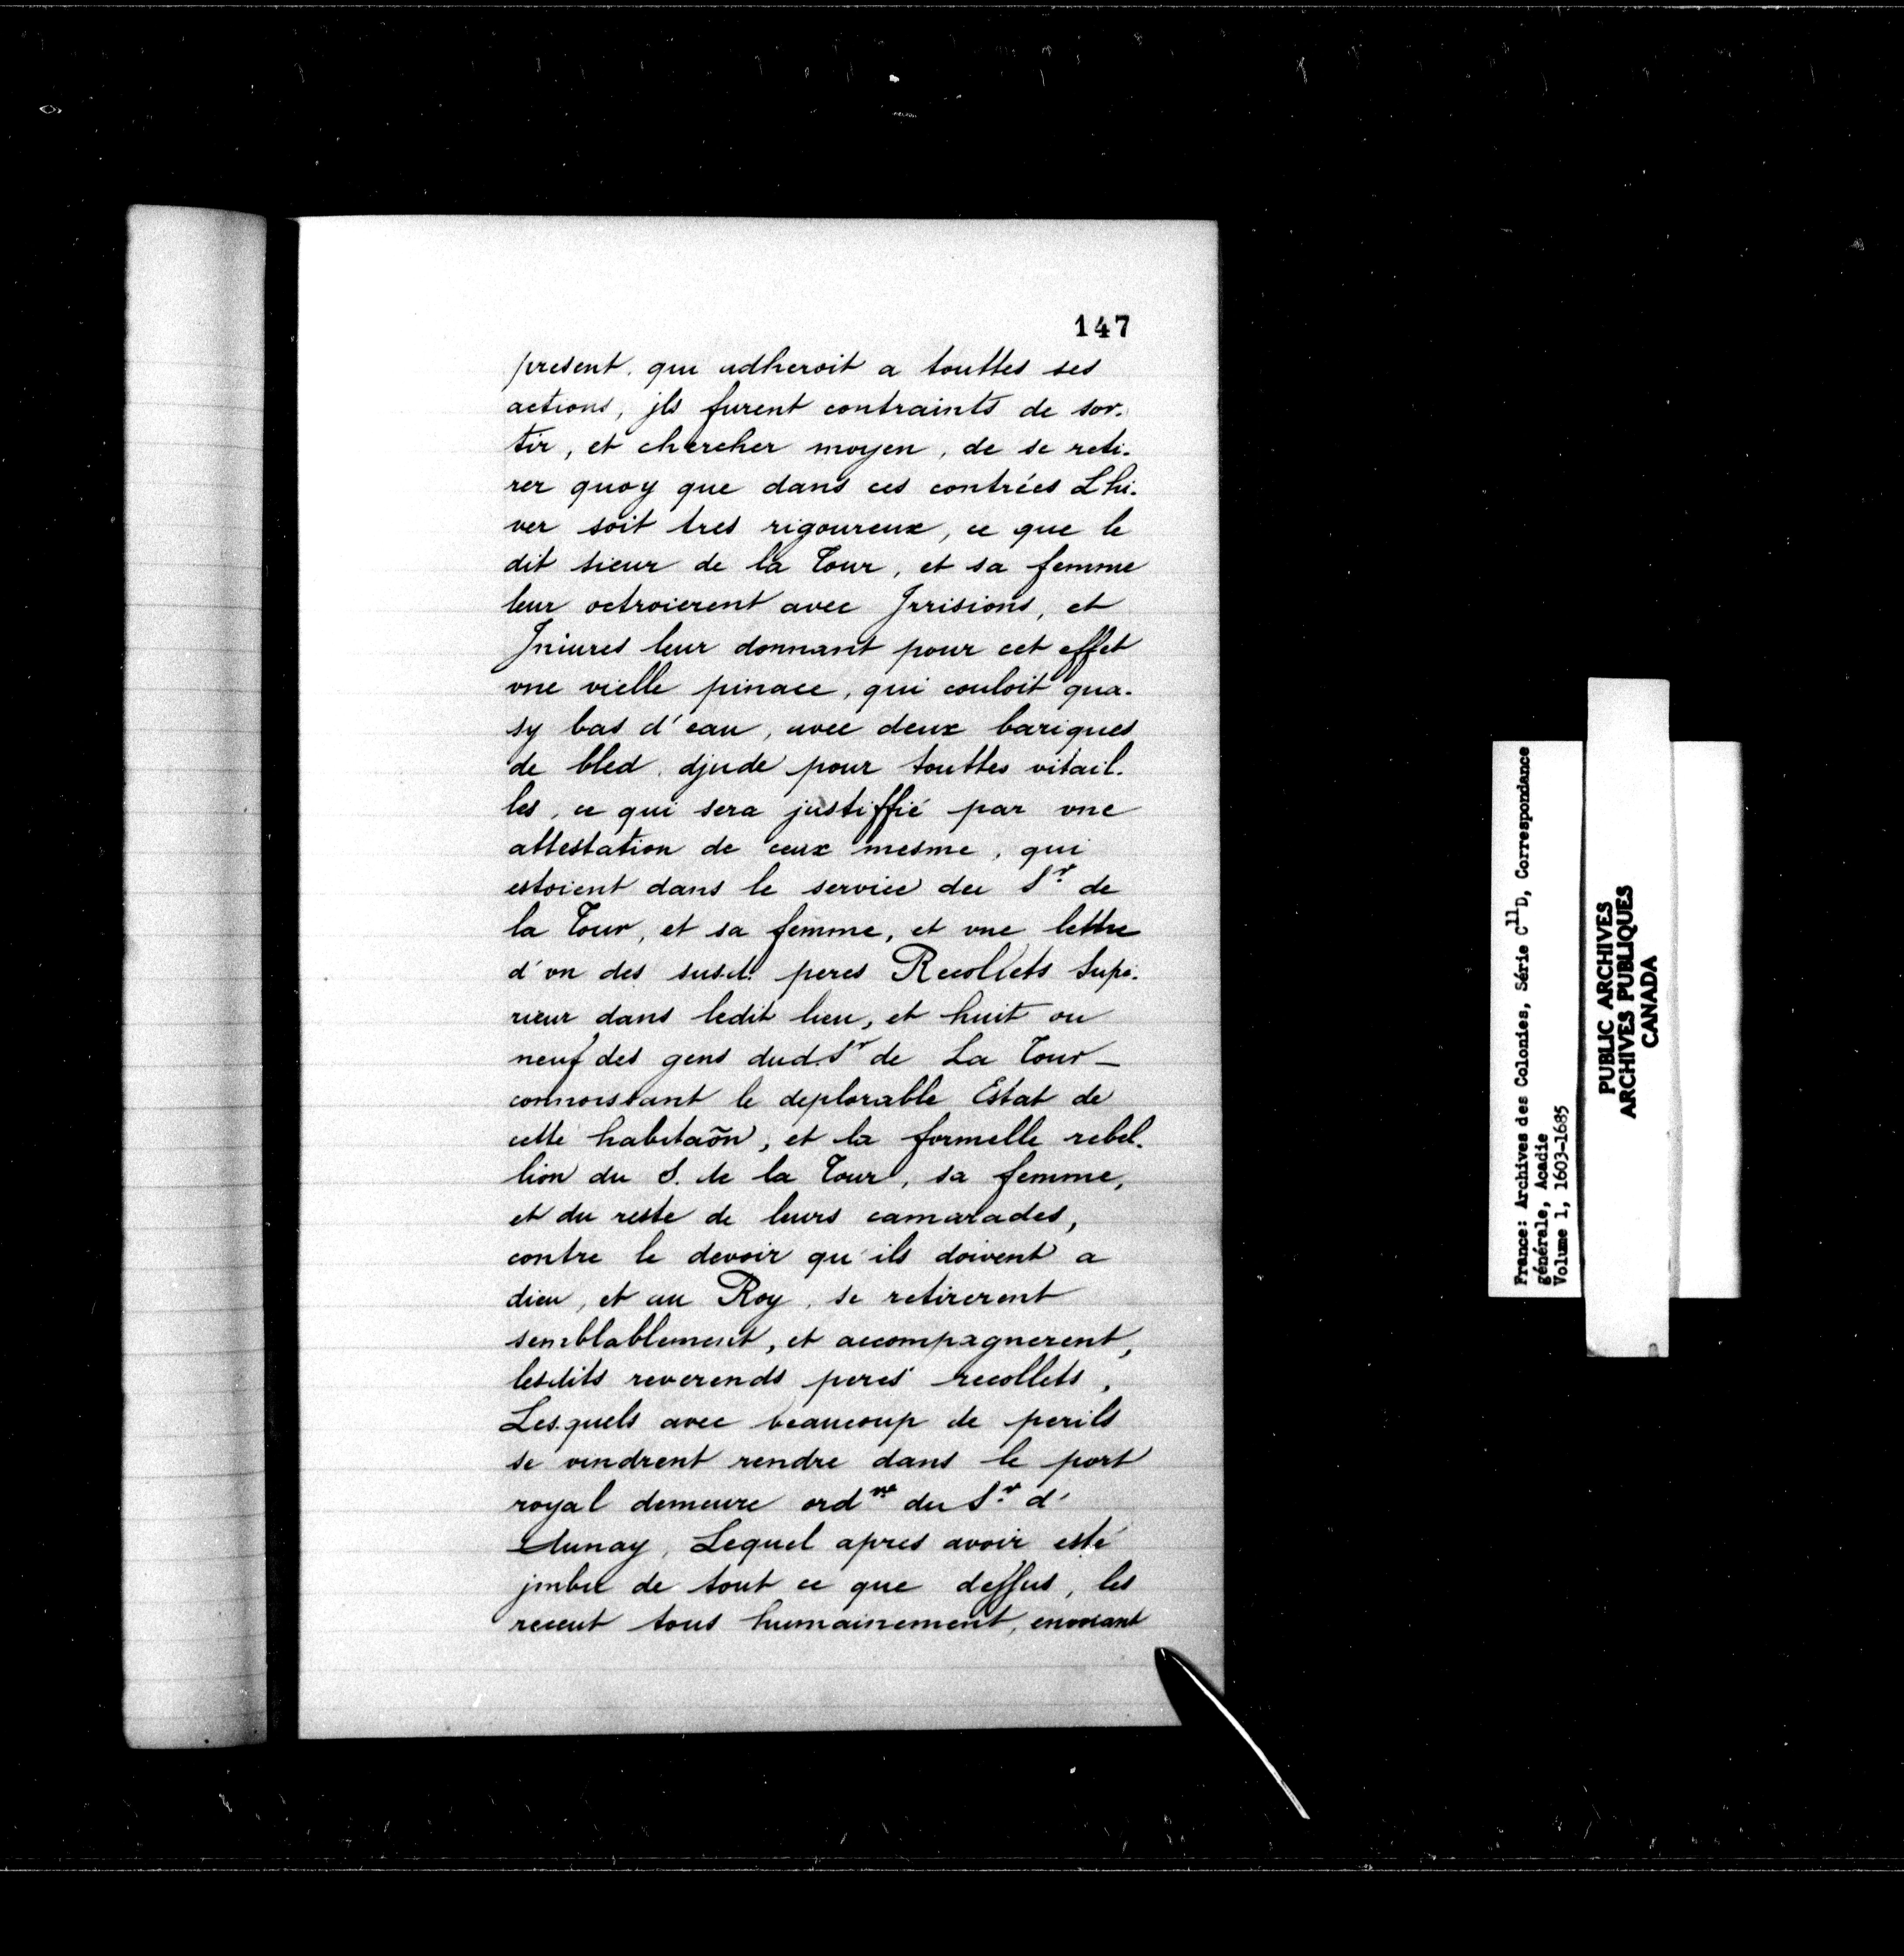 147
present, qui adheroit a touttes ses
actions, jls furent contraints de sor-
tir, et chercher moyen, de se reti-
rer quoy que dans ces contrées Lhi-
ver soit tres rigoureux, ce que le
dit sieur de la Tour, et sa femme
leur octroierent avec Jrrisions, et
Jniures leur donnant pour cet effet
vne vielle pinace, qui couloit qua-
sy bas d'eau, avec deux bariques
de bled djnde pour touttes vitail-
les, ce qui sera justiffié par vne
attestation de ceux mesme, qui
estoient dans le service du Sr de
la Tour, et sa femme, et vne lettre
d'vn des susd. peres Recollets Supe-
rieur dans ledit lieu, et huit ou
neuf des gens dud. Sr de La Tour —
connoissant le deplorable Estat de
cette habitaõn, et la formelle rebel-
lion du S. de la Tour, sa femme,
et du reste de leurs camarades,
contre le devoir qu'ils doivent a
dieu, et au Roy, se retirerent
semblablement, et accompagnerent,
lesdits reverends peres recollets,
Lesquels avec beaucoup de perils
se vindrent rendre dans le port
royal demeure ordre du Sr d'
Aunay, Lequel apres avoir esté
jmbu de tout ce que deffus, les
receut tous humainement, envoiant
France: Archives des Colonies, Série C11D, Correspondance
générale, Acadie
Volume 1, 1603-1685
PUBLIC ARCHIVES
ARCHIVES PUBLIQUES
CANADA